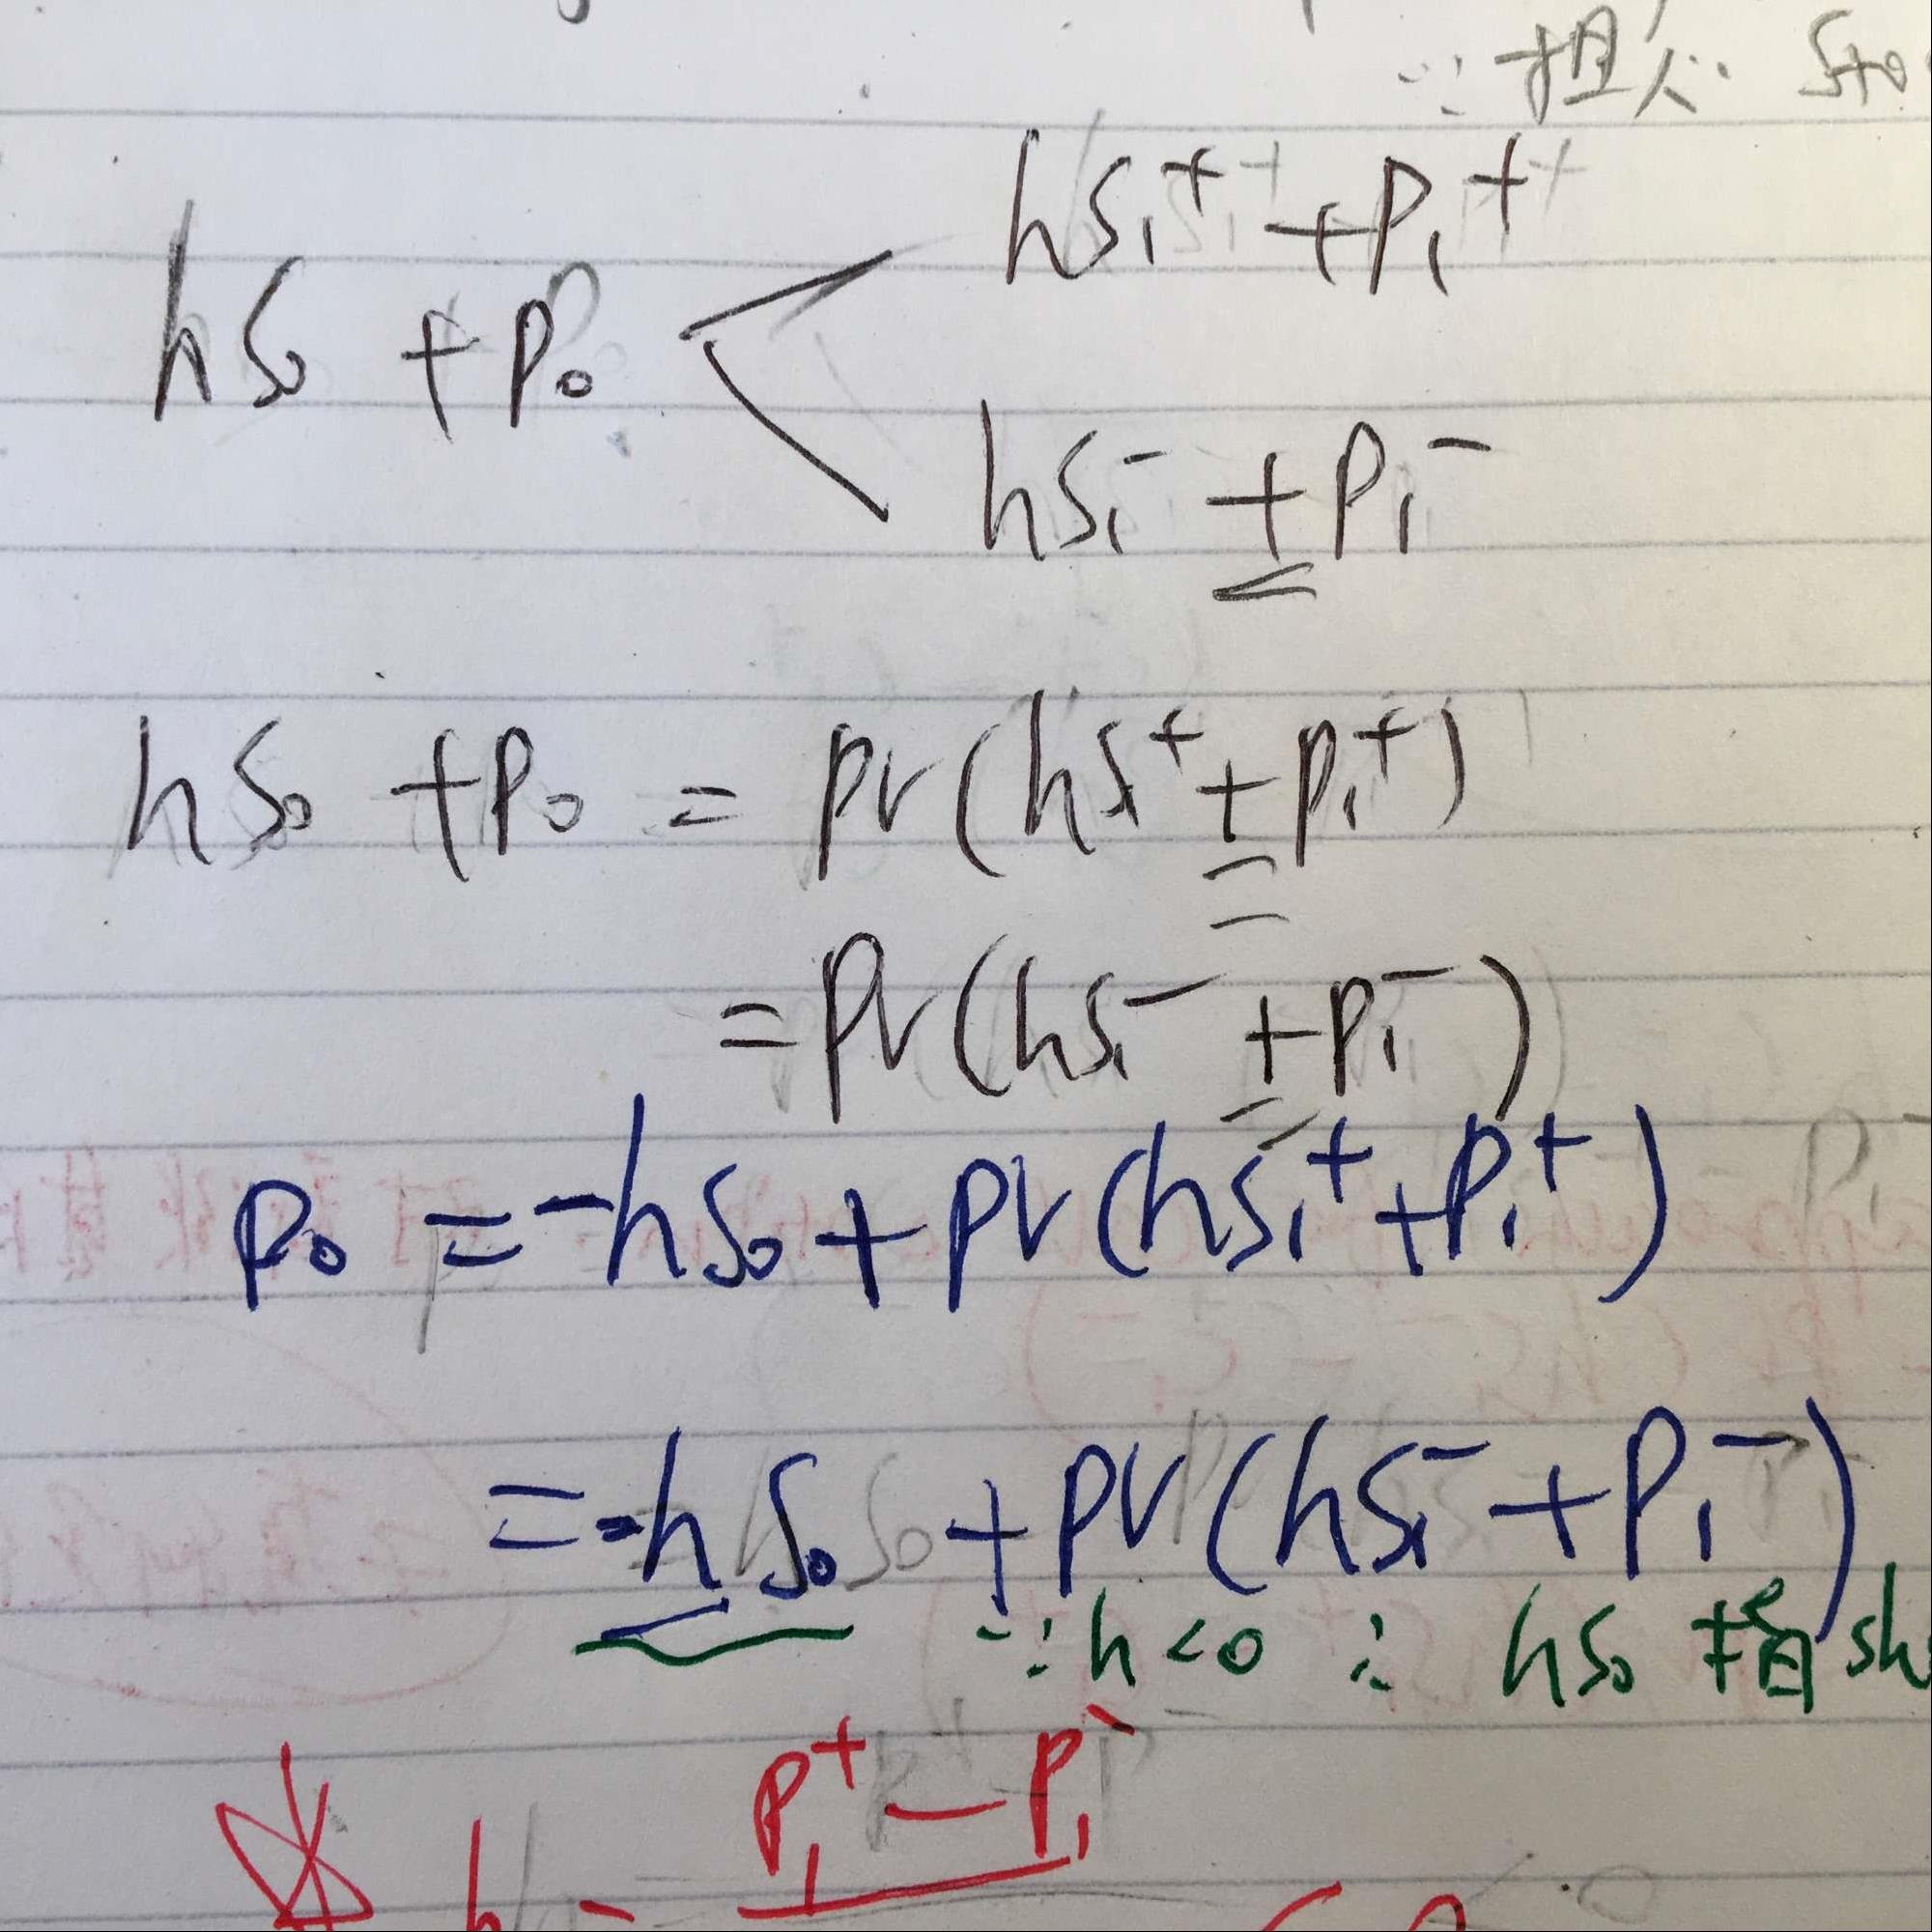 ∵ 担心 Sto
hS₁⁺ + P₁⁺
hS₀ + P₀
hS₁⁻ + P₁⁻
hS₀ + P₀ = PV(hS₁⁺ + P₁⁺)
= PV(hS₁⁻ + P₁⁻)
P₀ = -hS₀ + PV(hS₁⁺ + P₁⁺)
= -hS₀ + PV(hS₁⁻ + P₁⁻)
∵ h<0 ∴ hS₀ 指 sh
P₁⁺ - P₁⁻
h =